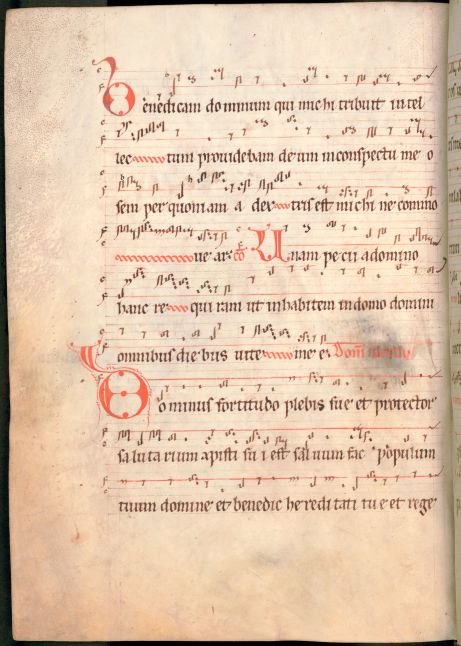 Benedicam dominum qui michi tribuit intel
lec tum providebam deum in conspectu me o
sem per quoniam a dex tris est michi ne commo
ve ar co Unam pe cii a domino
hanc re qui ram ut inhabitem in domo domini
omnibus die bus vite me e
Dominus fortitudo plebis sue et protector
sa lu ta rium christi su i est sal vum fac populum
tuum domine et benedic he redi tati tu e et rege